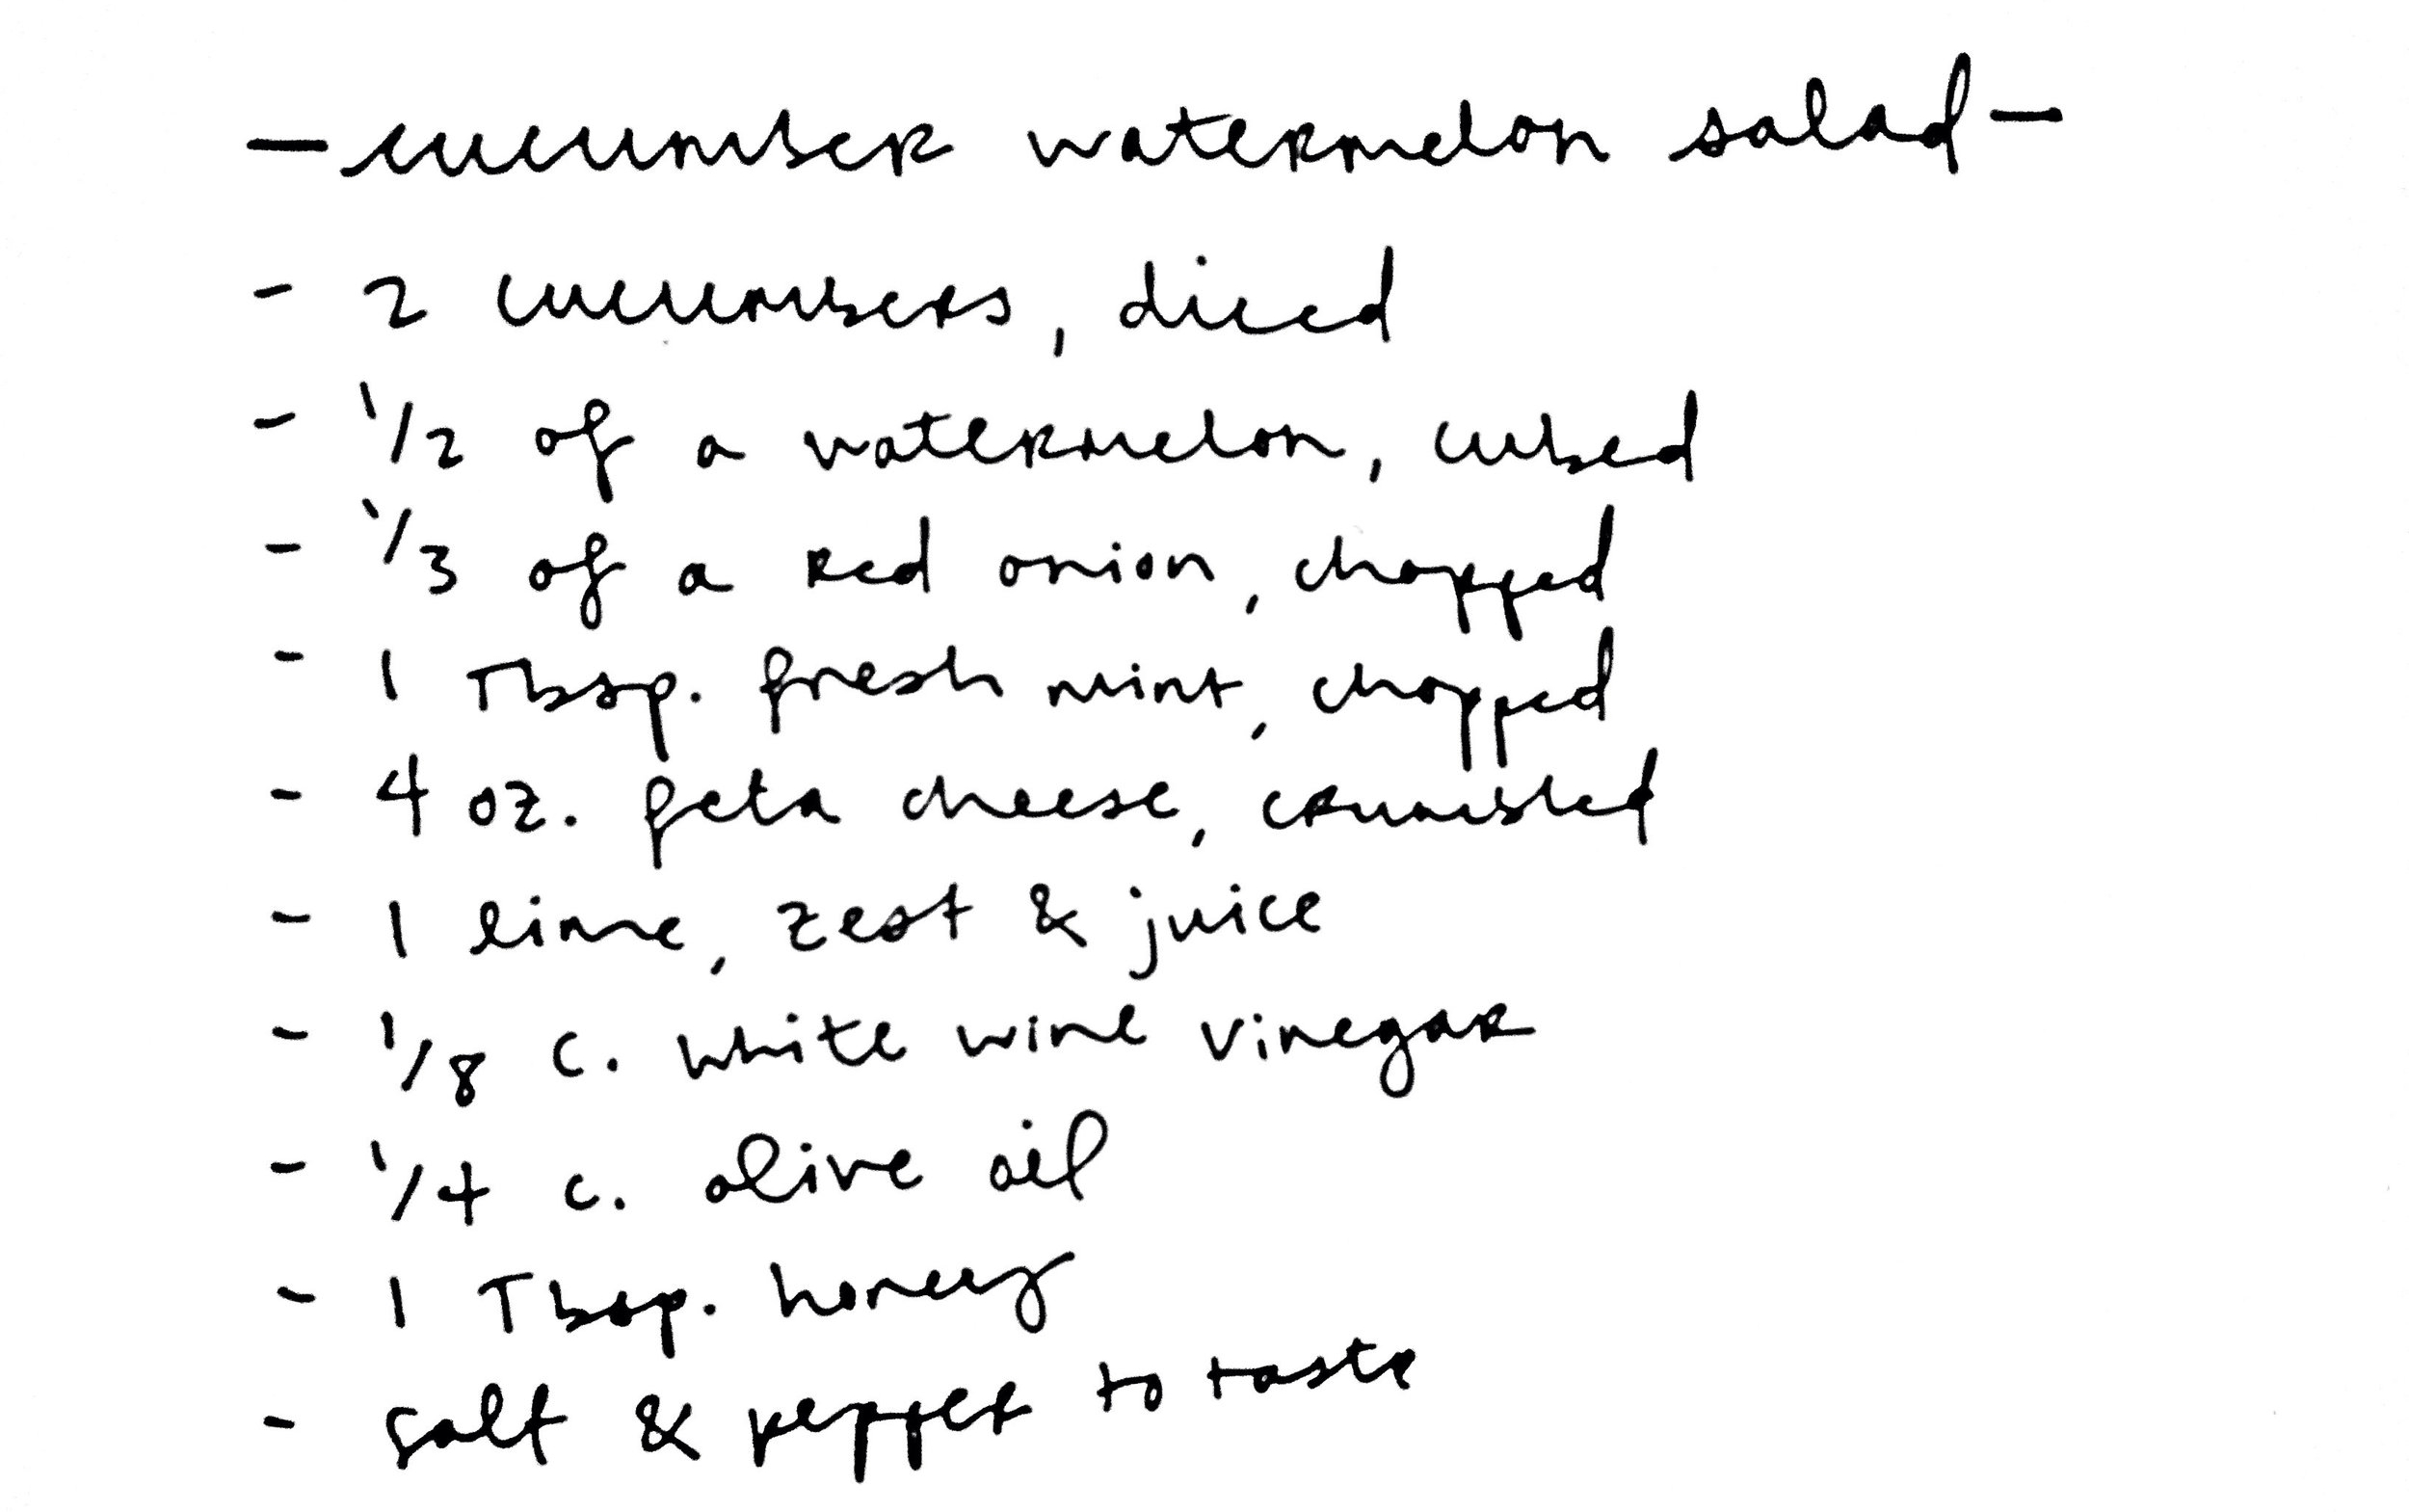 — cucumber watermelon salad —
- 2 cucumbers, diced
- 1/2 of a watermelon, cubed
- 1/3 of a red onion, chopped
- 1 Tbsp. fresh mint, chopped
- 4 oz. feta cheese, crumbled
- 1 lime, zest & juice
- 1/8 c. white wine vinegar
- 1/4 c. olive oil
- 1 Tbsp. honey
- salt & pepper to taste